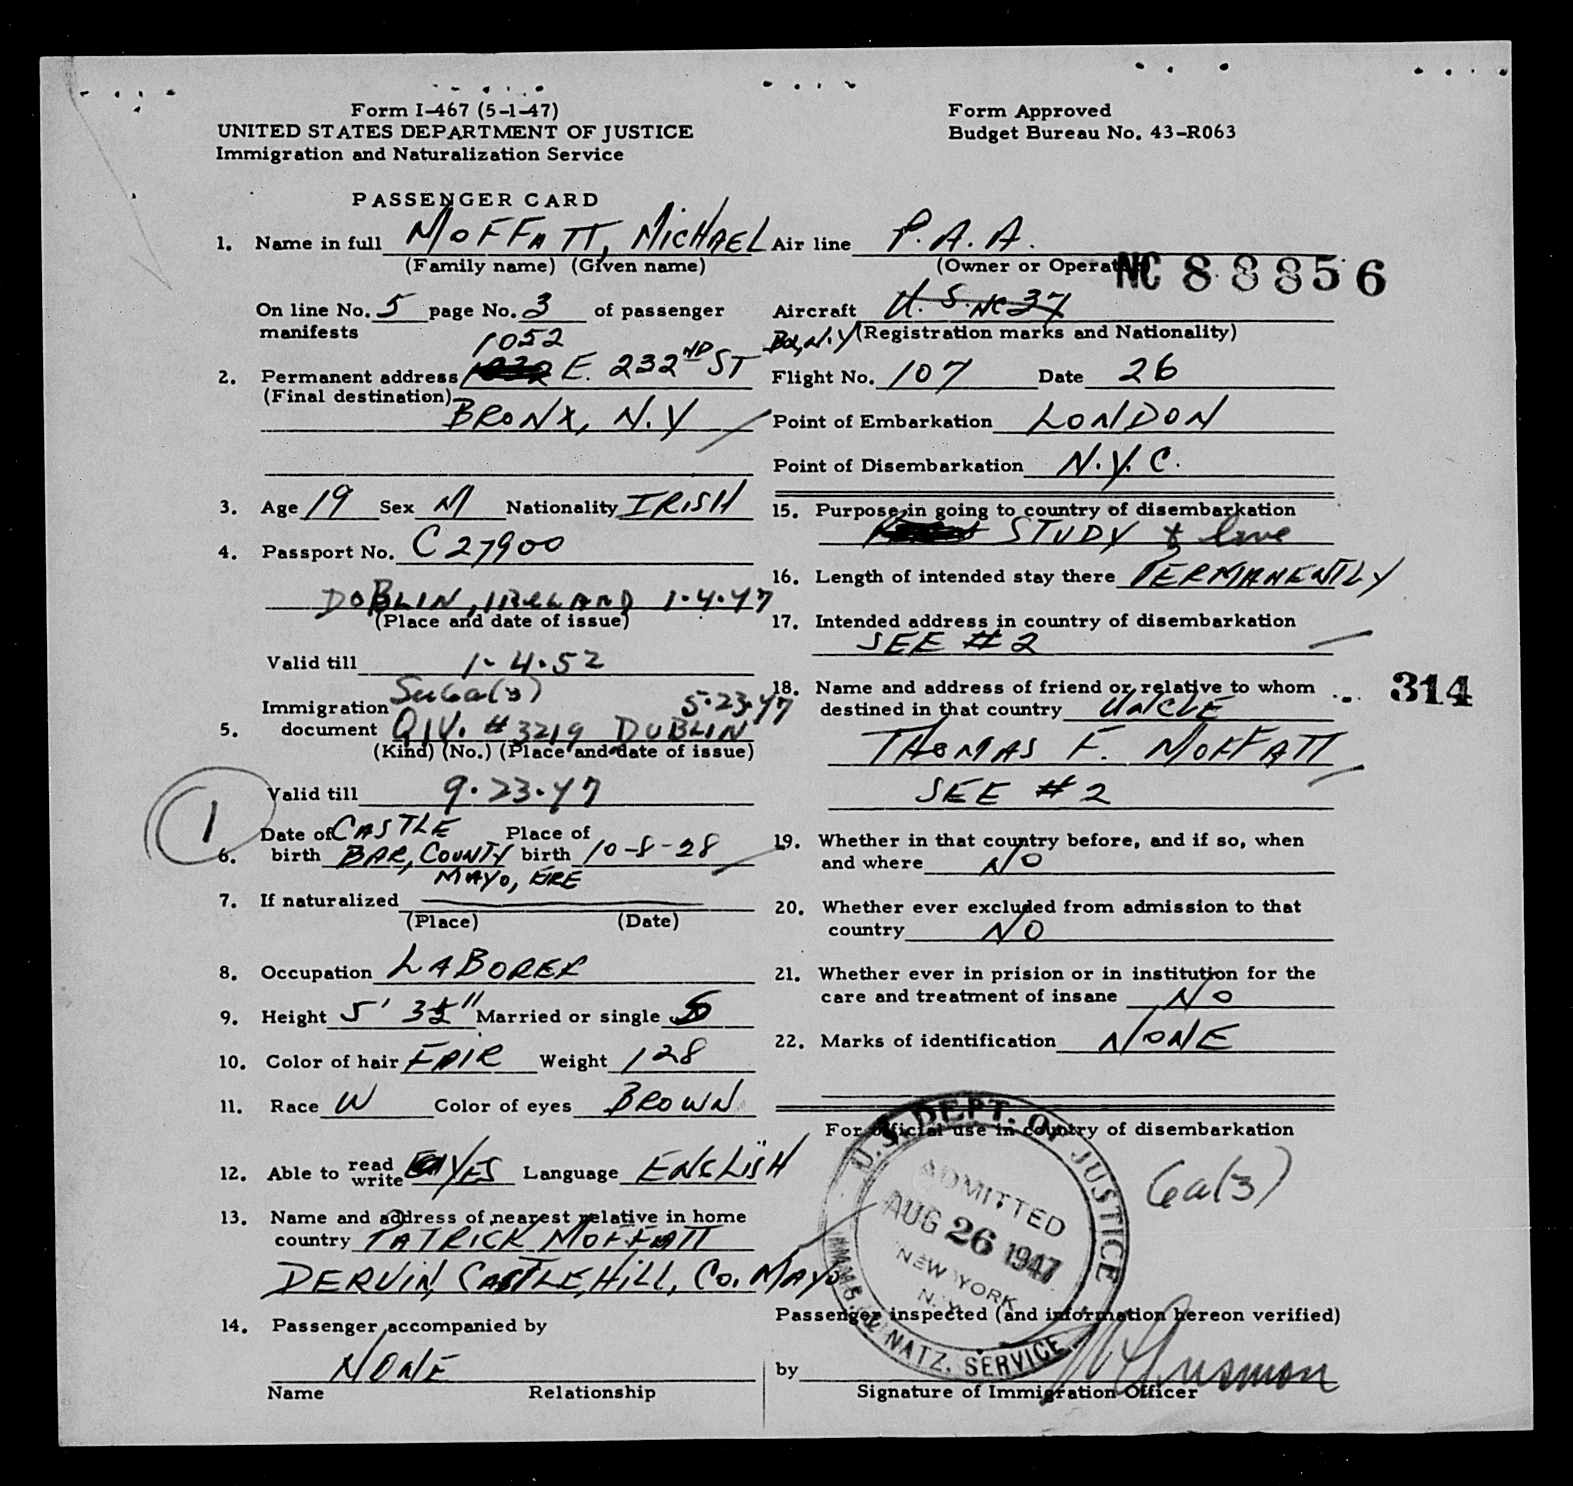 Form I-467 (5-1-47)
UNITED STATES DEPARTMENT OF JUSTICE
Immigration and Naturalization Service
Form Approved
Budget Bureau No. 43-R063
PASSENGER CARD
1. Name in full MOFFATT, MICHAEL
(Family name) (Given name)
On line No. 5 page No. 3 of passenger
manifests
1052
2. Permanent address E. 232ND ST
(Final destination)
BRONX, N.Y
3. Age 19 Sex M Nationality IRISH
4. Passport No. C27900
DUBLIN, IRELAND 1.4.47
(Place and date of issue)
Valid till 1.4.52
Immigration Sec 6a(3) 5.23.47
5. document QIV. #3219 DUBLIN
(Kind) (No.) (Place and date of issue)
Valid till 9.23.47
1
Date of CASTLE Place of
6. birth BAR, COUNTY birth 10-8-28
MAYO, EIRE
7. If naturalized
(Place) (Date)
8. Occupation LABORER
9. Height 5' 3½" Married or single S
10. Color of hair FAIR Weight 128
11. Race W Color of eyes BROWN
12. Able to read write YES Language ENGLISH
13. Name and address of nearest relative in home
country PATRICK MOFFATT
DERVIN, CASTLEHILL, CO. MAYO
14. Passenger accompanied by
NONE
Name Relationship
Air line P.A.A.
(Owner or Operator)
NC 88856
Aircraft U.S. NC 37
N.Y (Registration marks and Nationality)
Flight No. 107 Date 26
Point of Embarkation LONDON
Point of Disembarkation N.Y.C.
15. Purpose in going to country of disembarkation
STUDY & live
16. Length of intended stay there PERMANENTLY
17. Intended address in country of disembarkation
SEE #2
18. Name and address of friend or relative to whom
destined in that country UNCLE
314
THOMAS F. MOFFATT
SEE #2
19. Whether in that country before, and if so, when
and where NO
20. Whether ever excluded from admission to that
country NO
21. Whether ever in prision or in institution for the
care and treatment of insane NO
22. Marks of identification NONE
For official use in country of disembarkation
6a(3)
U.S. DEPT. OF JUSTICE
ADMITTED
AUG 26 1947
NEW YORK
N.Y.
IMMIG. & NATZ. SERVICE
Passenger inspected (and information hereon verified)
by
Signature of Immigration Officer